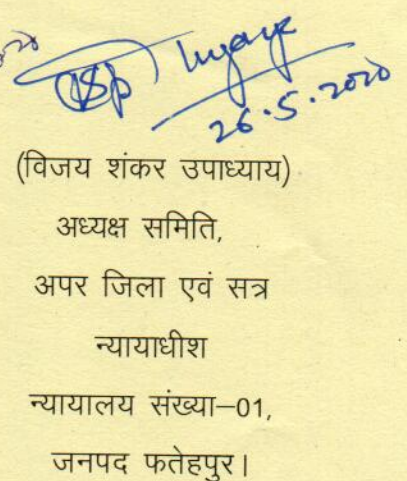 26.5.2020
(विजय शंकर उपाध्याय)
अध्यक्ष समिति,
अपर जिला एवं सत्र
न्यायाधीश
न्यायालय संख्या–01,
जनपद फतेहपुर।